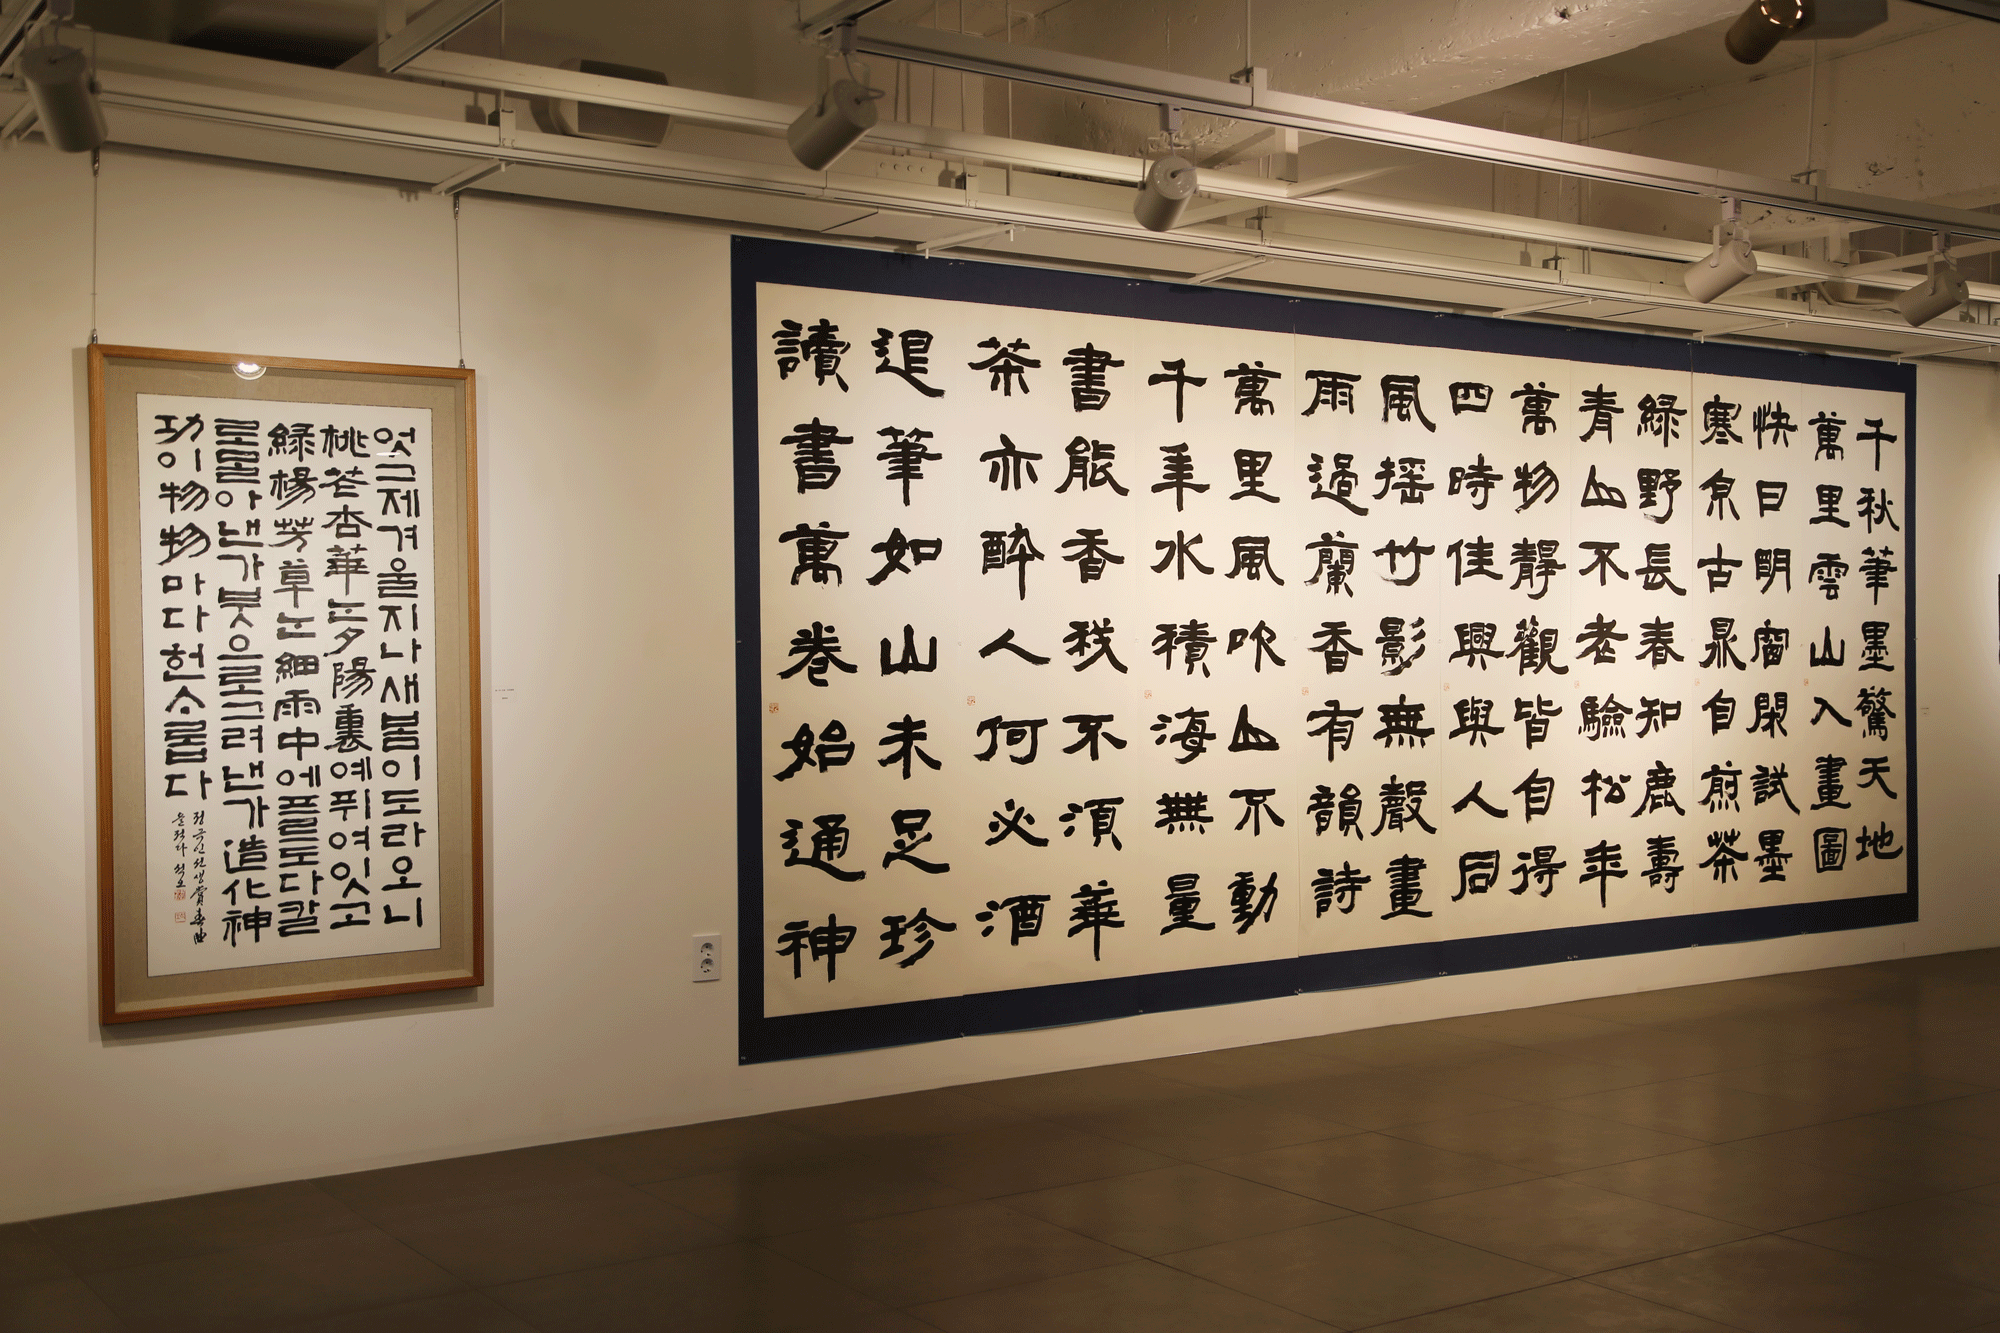 엇그제겨을지나새봄이도라오니
桃花杏華는夕陽裏예퓌여잇고
綠楊芳草는細雨中에프르도다칼
로몰아낸가붓으로그려낸가造化神
功이物物마다헌ᄉᆞ롭다
정극인선생賞春曲
을적다 석오
千秋筆墨驚天地
萬里雲山入畫圖
快日明窗閑試墨
寒泉古鼎自煎茶
綠野長春知鹿壽
青山不老驗松年
萬物靜觀皆自得
四時佳興與人同
風搖竹影無聲畫
雨過蘭香有韻詩
萬里風吹山不動
千年水積海無量
書能香我不須華
茶亦醉人何必酒
退筆如山未足珍
讀書萬卷始通神